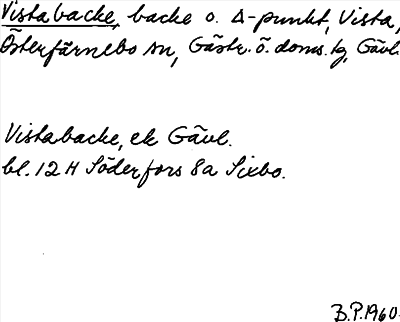 Vistabacke, backe o. Δ-punkt, Vista,
Österfärnebo sn, Gästr. ö. doms. tg, Gävl.
Vistabacke, ek Gävl.
bl. 12 H Söderfors 8a Sixbo.
B.P. 1960.